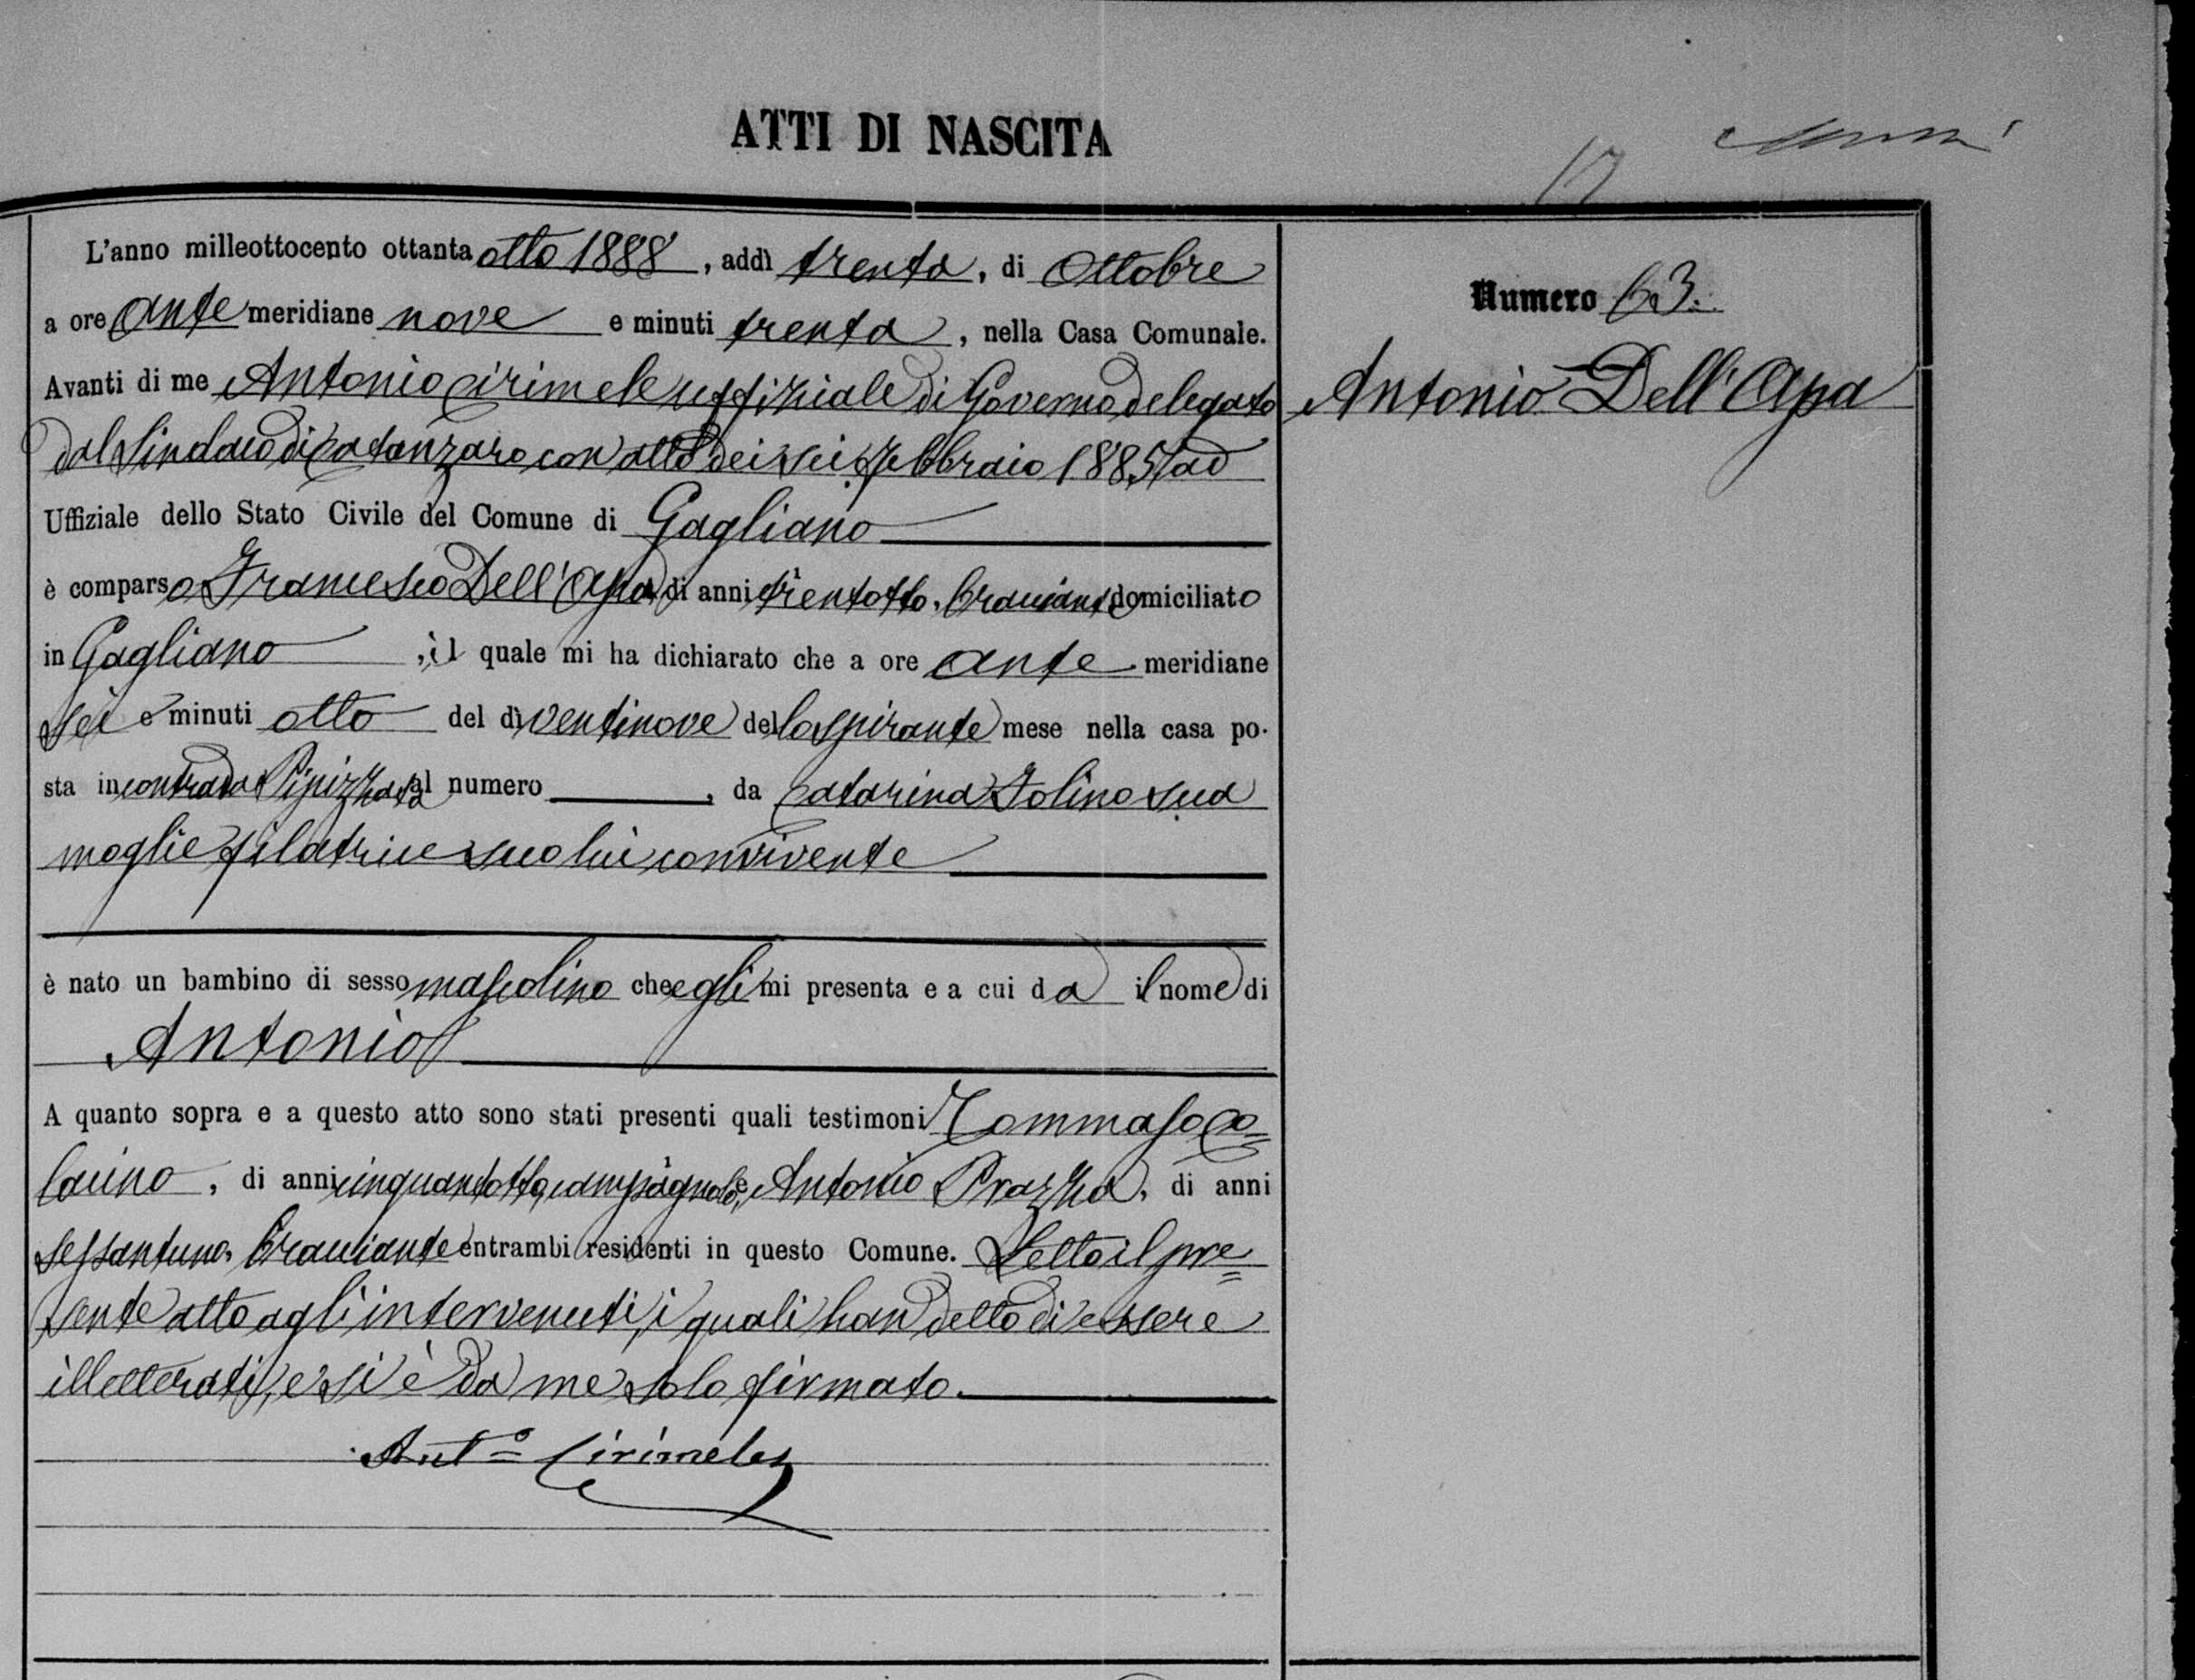 ATTI DI NASCITA
17
L'anno milleottocento ottanta otto 1888, addì trenta, di Ottobre
a ore ante meridiane nove e minuti trenta, nella Casa Comunale.
Avanti di me Antonio Cirimele uffiziale di Governo delegato
dal Sindaco di Catanzaro con atto dei sei Febbraio 1885, ad
Uffiziale dello Stato Civile del Comune di Gagliano
è comparso Francesco Dell'Apa, di anni trentotto, bracciante domiciliato
in Gagliano, il quale mi ha dichiarato che a ore ante meridiane
sei e minuti otto del dì ventinove dello spirante mese nella casa po-
sta in contrada Pipizzata al numero, da Catarina Tolino sua
moglie filatrice seco lui convivente
è nato un bambino di sesso mascolino che egli mi presenta e a cui dà il nome di
Antonio
A quanto sopra e a questo atto sono stati presenti quali testimoni Tommaso Co=
lacino, di anni cinquantotto, campagnolo, e Antonio Prazza, di anni
sessantuno, bracciante entrambi residenti in questo Comune. Letto il pre=
sente atto agli intervenuti, i quali han detto di essere
illetterati, e si è da me solo firmato.
Ant.º Cirimele
Numero 63.
Antonio Dell'Apa